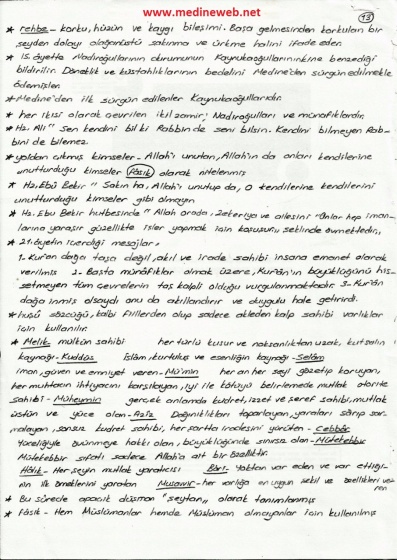 www.medineweb.net
13
* rehbe - korku, hüzün ve kaygı bileşimi. Başa gelmesinden korkulan bir
şeyden dolayı olağanüstü sakınma ve ürkme halini ifade eder.
* 15. âyette Nadiroğullarının durumunun Kaynukaoğullarınınkine benzediği
bildirilir. Döneklik ve küstahlıklarının bedelini Medine'den sürgün edilmekle
ödemişler.
* Medine'den ilk sürgün edilenler Kaynukaoğullarıdır.
* her ikisi olarak çevrilen ikil zamir; Nadiroğulları ve münafıklardır.
* Hz. Ali " Sen kendini bil ki Rabbin de seni bilsin. Kendini bilmeyen Rab-
bini de bilemez
* yoldan çıkmış kimseler - Allah'ı unutan, Allah'ın da onları kendilerine
unutturduğu kimseler fâsık olarak nitelenmiş
* Hz. Ebû Bekir " Sakın ha, Allah'ı unutup da, O kendilerine kendilerini
unutturduğu kimseler gibi olmayın
* Hz. Ebu Bekir hutbesinde " Allah orada, Zekeriya ve ailesini "Onlar hep iman-
larına yaraşır güzellikte işler yapmak için koşuşuru şeklinde övmektedir.,,
* 21. âyetin içerdiği mesajlar,
1. Kur'an dağa taşa değil, akıl ve irade sahibi insana emanet olarak
verilmiş 2- Başta münâfıklar olmak üzere, Kur'ân'ın büyüklüğünü his-
setmeyen tüm çevrelerin taş kalpli olduğu vurgulanmaktadır. 3- Kur'ân
dağa inmiş olsaydı onu da akıllandırır ve duygulu hale getirirdi.
* huşû sözcüğü, kalbi fiillerden olup sadece akleden kalp sahibi varlıklar
için kullanılır.
* Melik mülkün sahibi her türlü kusur ve noksanlıktan uzak, kutsalın
kaynağı - Kuddüs İslâm, kurtuluş ve esenliğin kaynağı - Selâm
iman, güven ve emniyet veren - Mü'min her an her şeyi gözetip koruyan,
her muhtacın ihtiyacını karşılayan, iyi ile kötüyü belirlemede mutlak otorite
sahibi - Müheymin gerçek anlamda kudret, izzet ve şeref sahibi, mutlak
üstün ve yüce olan - Aziz Dağınıklıkları toparlayan, yaraları sarıp sar-
malayan, sonsuz kudret sahibi, her şartta iradesini yürüten - Cebbâr
Yüceliğiyle övünmeye hakkı olan, büyüklüğünde sınırsız olan - Mütekebbir
Mütekebbir sıfatı sadece Allah'a ait bir özelliktir.
Hâlık - Her şeyin mutlak yaratıcısı Bâri - Yoktan var eden ve var ettiği-
nin ilk örneklerini yaratan Musavvir - her varlığa en uygun şekil ve özellikleri ve-
ren
* Bu sûrede apaçık düşman "şeytan,, olarak tanımlanmış
* Fâsık - Hem Müslümanlar hemde Müslüman olmayanlar için kullanılmış